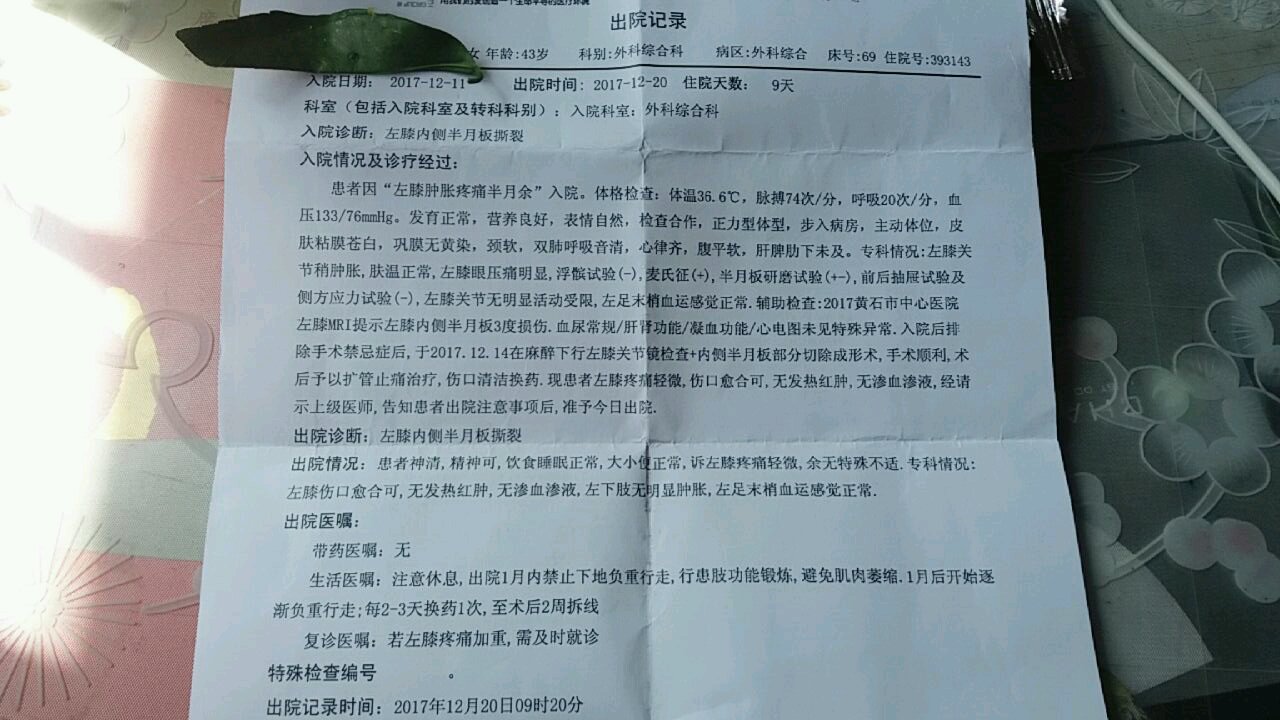 出院记录
女 年龄:43岁 科别:外科综合科 病区:外科综合 床号:69 住院号:393143
入院日期: 2017-12-11 出院时间: 2017-12-20 住院天数: 9天
科室（包括入院科室及转科科别）: 入院科室: 外科综合科
入院诊断: 左膝内侧半月板撕裂
入院情况及诊疗经过:
患者因“左膝肿胀疼痛半月余”入院。体格检查: 体温36.6℃, 脉搏74次/分, 呼吸20次/分, 血
压133/76mmHg。发育正常, 营养良好, 表情自然, 检查合作, 正力型体型, 步入病房, 主动体位, 皮
肤粘膜苍白, 巩膜无黄染, 颈软, 双肺呼吸音清, 心律齐, 腹平软, 肝脾肋下未及。专科情况:左膝关
节稍肿胀, 肤温正常, 左膝眼压痛明显, 浮髌试验(-), 麦氏征(+), 半月板研磨试验(+-), 前后抽屉试验及
侧方应力试验(-), 左膝关节无明显活动受限, 左足末梢血运感觉正常. 辅助检查:2017黄石市中心医院
左膝MRI提示左膝内侧半月板3度损伤. 血尿常规/肝肾功能/凝血功能/心电图未见特殊异常. 入院后排
除手术禁忌症后, 于2017.12.14在麻醉下行左膝关节镜检查+内侧半月板部分切除成形术, 手术顺利, 术
后予以扩管止痛治疗, 伤口清洁换药. 现患者左膝疼痛轻微, 伤口愈合可, 无发热红肿, 无渗血渗液, 经请
示上级医师, 告知患者出院注意事项后, 准予今日出院.
出院诊断: 左膝内侧半月板撕裂
出院情况: 患者神清, 精神可, 饮食睡眠正常, 大小便正常, 诉左膝疼痛轻微, 余无特殊不适. 专科情况:
左膝伤口愈合可, 无发热红肿, 无渗血渗液, 左下肢无明显肿胀, 左足末梢血运感觉正常.
出院医嘱:
带药医嘱: 无
生活医嘱: 注意休息, 出院1月内禁止下地负重行走, 行患肢功能锻炼, 避免肌肉萎缩. 1月后开始逐
渐负重行走; 每2-3天换药1次, 至术后2周拆线
复诊医嘱: 若左膝疼痛加重, 需及时就诊
特殊检查编号 。
出院记录时间: 2017年12月20日09时20分